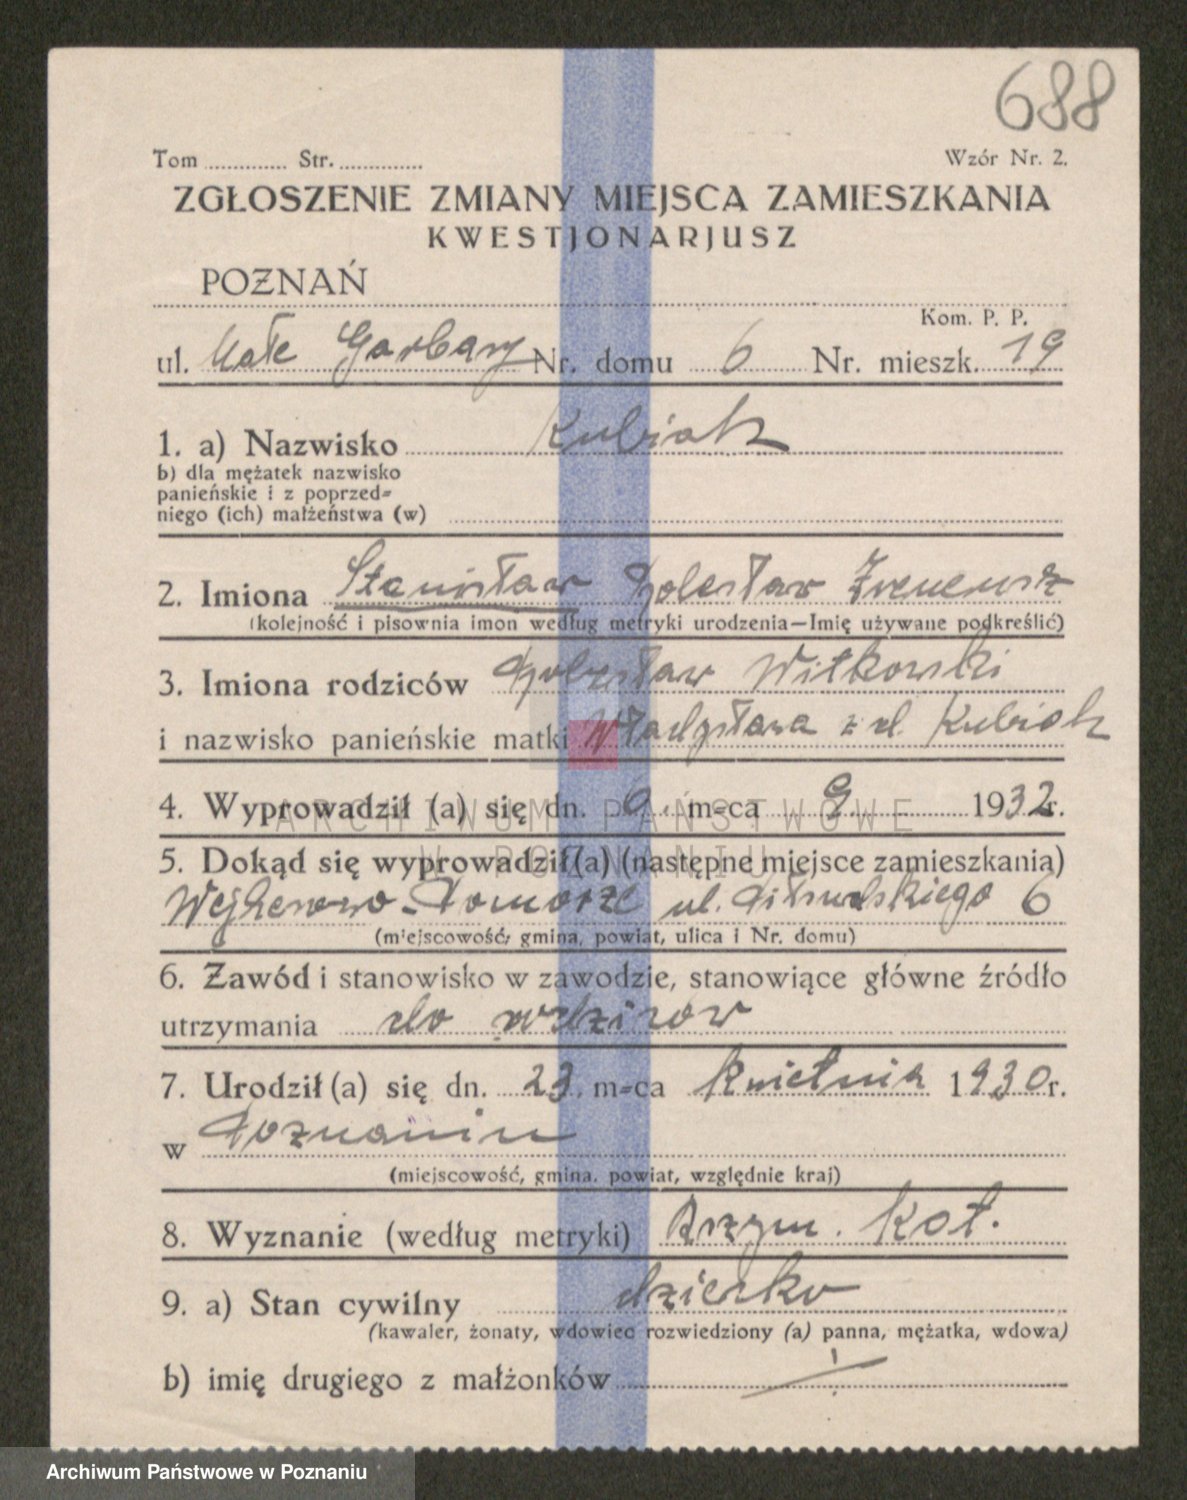 688
Tom ............ Str. ............ Wzór Nr. 2.
ZGŁOSZENIE ZMIANY MIEJSCA ZAMIESZKANIA
KWESTJONARJUSZ
POZNAŃ
Kom. P. P.
ul. Małe Garbary Nr. domu 6 Nr. mieszk. 19
1. a) Nazwisko Kubiak
b) dla mężatek nazwisko
panieńskie i z poprzed=
niego (ich) małżeństwa (w)
2. Imiona Stanisław Bolesław Ireneusz
(kolejność i pisownia imon według metryki urodzenia—Imię używane podkreślić)
3. Imiona rodziców Bolesław Witkowski
i nazwisko panieńskie matki Władysława z d. Kubiak
4. Wyprowadził (a) się dn. 6. m=ca 9. 1932 r.
ARCHIWUM PAŃSTWOWE
W POZNANIU
5. Dokąd się wyprowadził (a) (następne miejsce zamieszkania)
Wejherowo - Pomorze ul. Piłsudskiego 6
(miejscowość, gmina, powiat, ulica i Nr. domu)
6. Zawód i stanowisko w zawodzie, stanowiące główne źródło
utrzymania do rodziców
7. Urodził (a) się dn. 23. m=ca kwietnia 1930 r.
w Poznaniu
(miejscowość, gmina. powiat, względnie kraj)
8. Wyznanie (według metryki) Rzym. Kat.
9. a) Stan cywilny dziecko
(kawaler, żonaty, wdowiec rozwiedziony (a) panna, mężatka, wdowa)
b) imię drugiego z małżonków
Archiwum Państwowe w Poznaniu